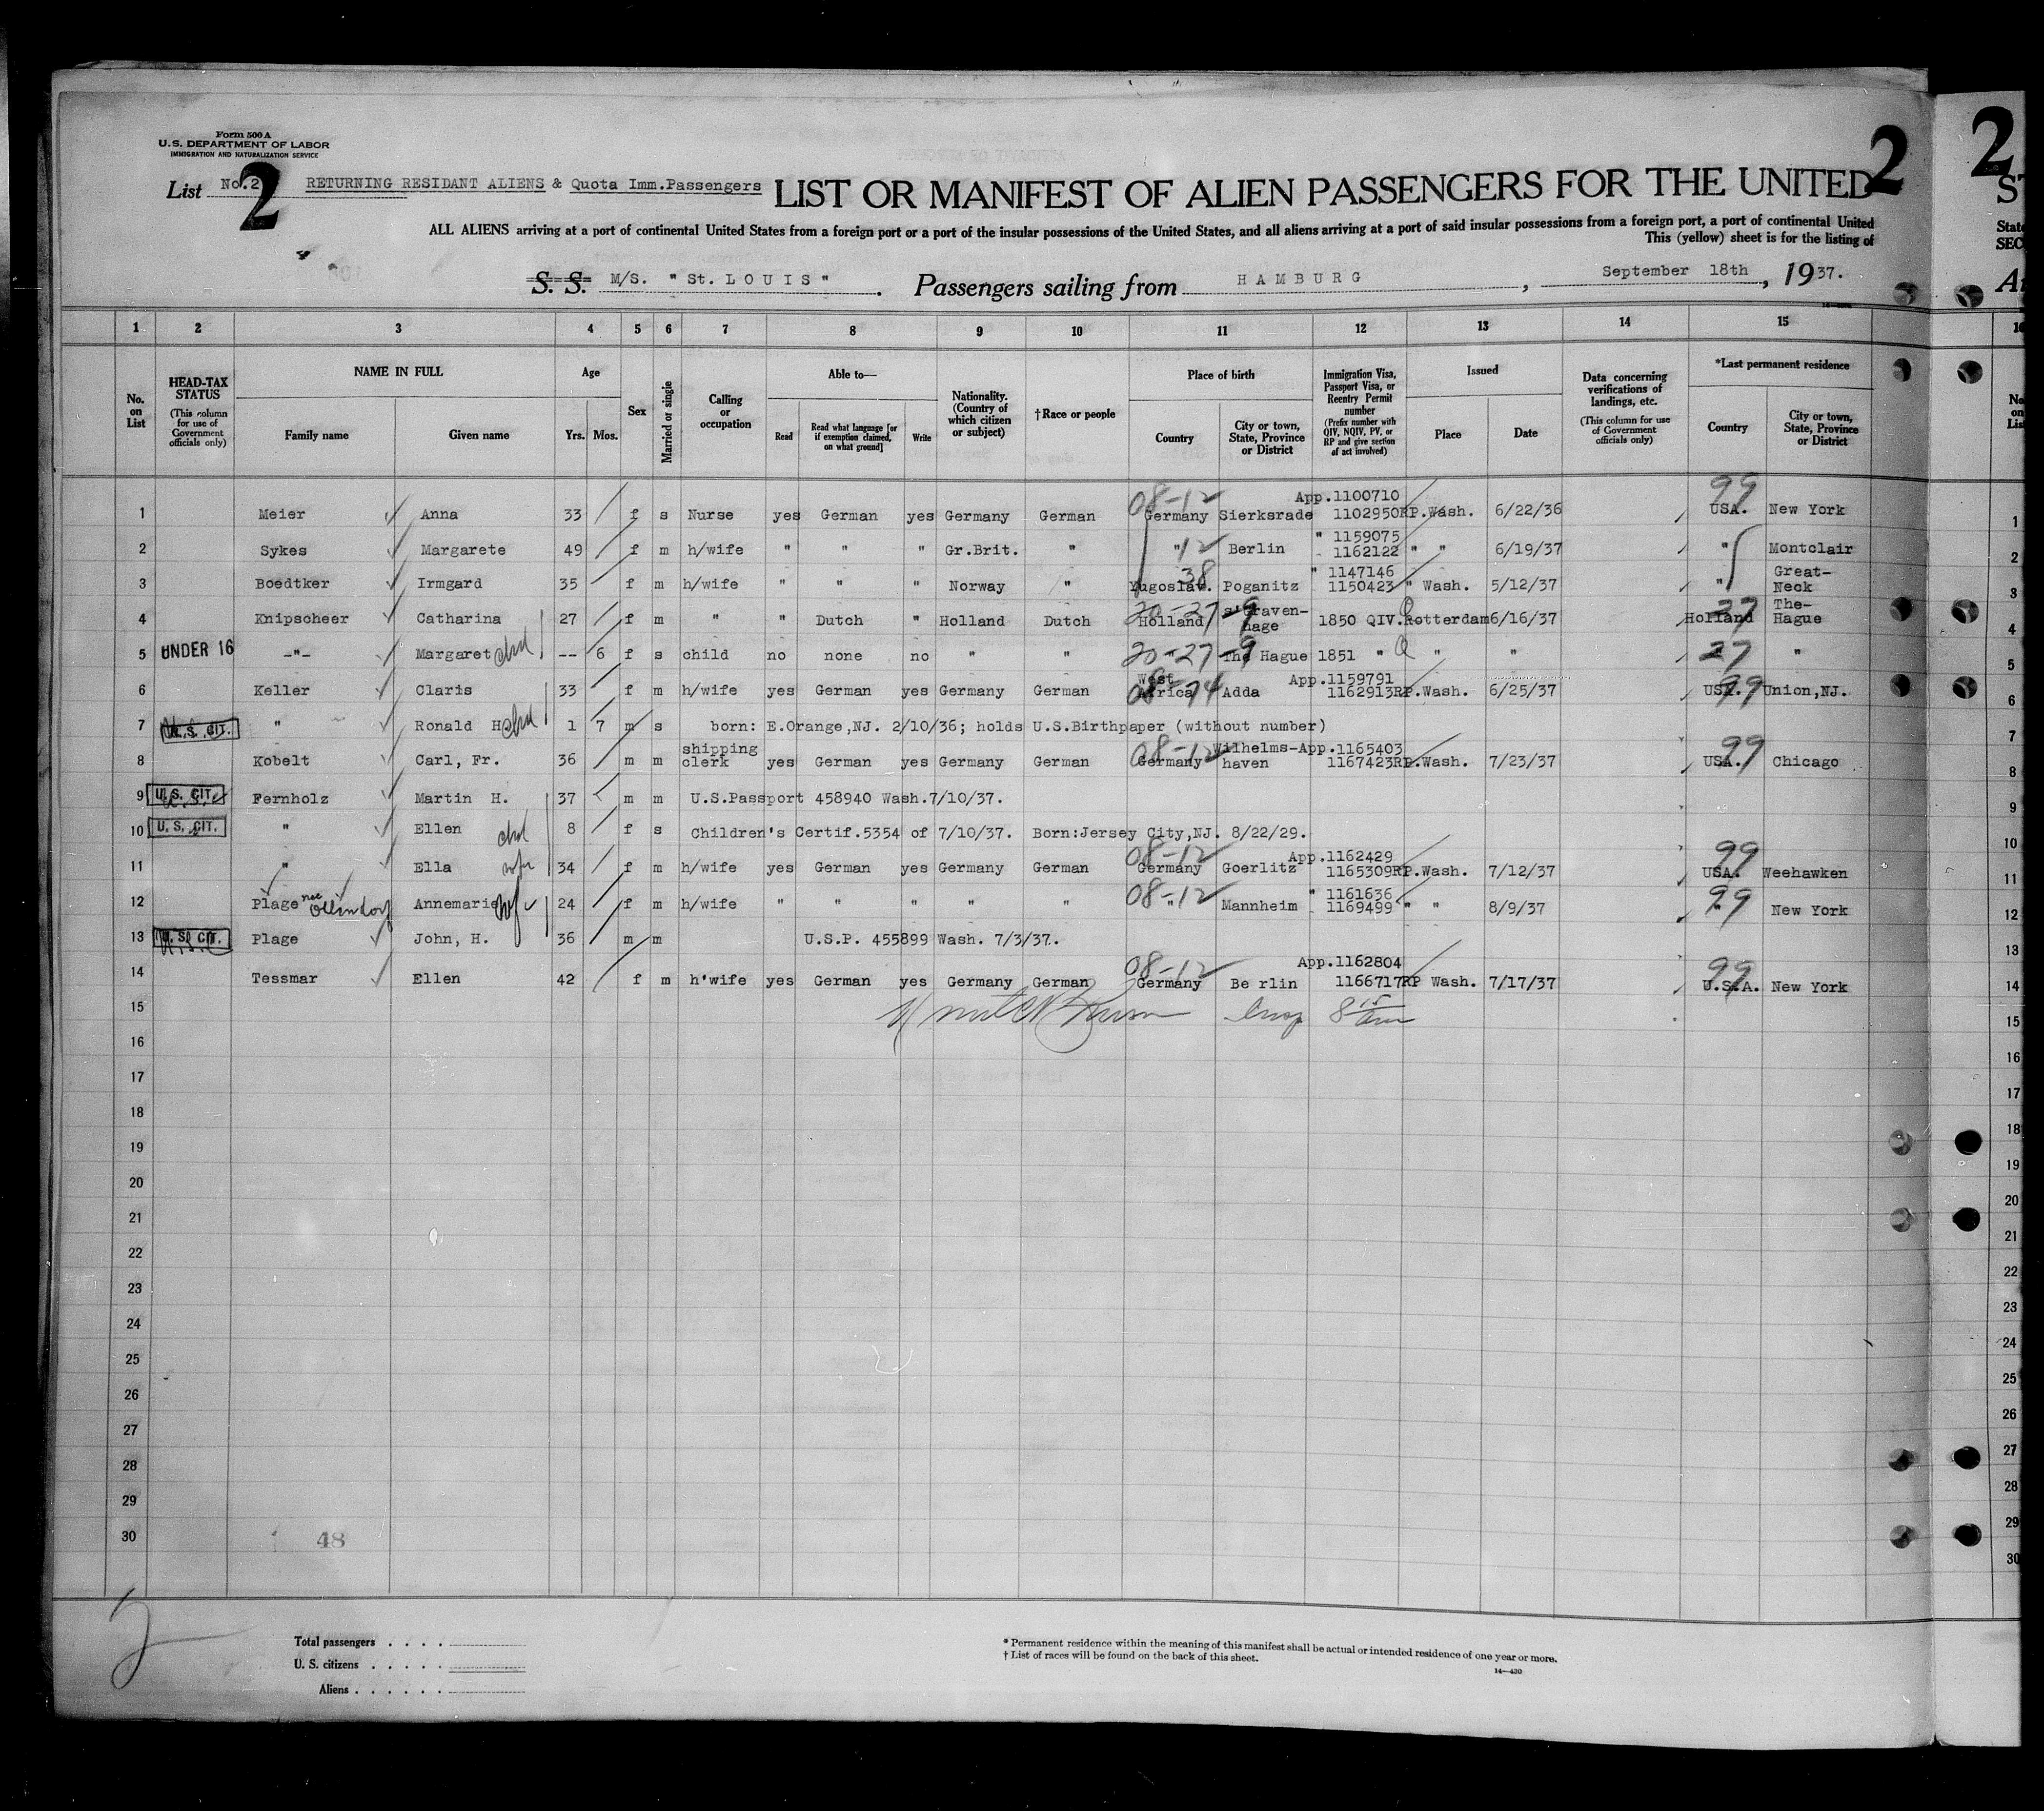 Form 500 A
U. S. DEPARTMENT OF LABOR
IMMIGRATION AND NATURALIZATION SERVICE
List No.2 2 RETURNING RESIDANT ALIENS & Quota Imm.Passengers LIST OR MANIFEST OF ALIEN PASSENGERS FOR THE UNITED 2
ALL ALIENS arriving at a port of continental United States from a foreign port or a port of the insular possessions of the United States, and all aliens arriving at a port of said insular possessions from a foreign port, a port of continental United
This (yellow) sheet is for the listing of
S. S. M/S. "St.LOUIS". Passengers sailing from HAMBURG, September 18th, 1937.
1 2 3 4 5 6 7 8 9 10 11 12 13 14 15
No. on List
HEAD-TAX STATUS (This column for use of Government officials only)
NAME IN FULL
Family name Given name
Age
Yrs. Mos.
Sex
Married or single
Calling or occupation
Able to—
Read Read what language [or if exemption claimed, on what ground] Write
Nationality. (Country of which citizen or subject)
†Race or people
Place of birth
Country City or town, State, Province or District
Immigration Visa, Passport Visa, or Reentry Permit number (Prefix number with QIV, NQIV, PV, or RP and give section of act involved)
Issued
Place Date
Data concerning verifications of landings, etc. (This column for use of Government officials only)
*Last permanent residence
Country City or town, State, Province or District
1 Meier Anna 33 f s Nurse yes German yes Germany German 08-12 Germany Sierksrade App.1100710 1102950RP.Wash. 6/22/36 99 USA. New York
2 Sykes Margarete 49 f m h/wife " " " Gr.Brit. " " 12 Berlin " 1159075 1162122 " " 6/19/37 " Montclair
3 Boedtker Irmgard 35 f m h/wife " " " Norway " 38 Yugoslav. Poganitz " 1147146 1150423 " Wash. 5/12/37 " Great-Neck
4 Knipscheer Catharina 27 f m " " Dutch " Holland Dutch 20-27-9 Holland s'Graven-hage 1850 QIV. Q Rotterdam 6/16/37 27 Holland The-Hague
5 UNDER 16 -"- Margaret chd -- 6 f s child no none no " " 20-27-9 " The Hague 1851 " Q " " 27 "
6 Keller Claris 33 f m h/wife yes German yes Germany German 08-74 West Africa Adda App.1159791 1162913RP.Wash. 6/25/37 99 USA. Union,NJ.
7 U. S. CIT. " Ronald H chd 1 7 m s born: E.Orange,NJ. 2/10/36; holds U.S.Birthpaper (without number)
8 Kobelt Carl, Fr. 36 m m shipping clerk yes German yes Germany German 08-12 Germany Wilhelms-haven App.1165403 1167423RP.Wash. 7/23/37 99 USA. Chicago
9 U. S. CIT. Fernholz Martin H. 37 m m U.S.Passport 458940 Wash.7/10/37.
10 U. S. CIT. " Ellen chd 8 f s Children's Certif.5354 of 7/10/37. Born:Jersey City,NJ. 8/22/29.
11 " Ella wfe 34 f m h/wife yes German yes Germany German 08-12 Germany Goerlitz App.1162429 1165309RP.Wash. 7/12/37 99 USA. Weehawken
12 Plage nee Ollendorf Annemarie wf 24 f m h/wife " " " " " 08-12 " Mannheim " 1161636 1169499 " " 8/9/37 99 " New York
13 U. S. CIT. Plage John, H. 36 m m U.S.P. 455899 Wash. 7/3/37.
14 Tessmar Ellen 42 f m h'wife yes German yes Germany German 08-12 Germany Be rlin App.1162804 1166717RP Wash. 7/17/37 99 U.S.A. New York
15 Insp 8 15 am
16
17
18
19
20
21
22
23
24
25
26
27
28
29
30
48
Total passengers . . . .
U. S. citizens . . . . .
Aliens . . . . . .
* Permanent residence within the meaning of this manifest shall be actual or intended residence of one year or more.
† List of races will be found on the back of this sheet.
14—430
2
State
SEC
16
No. on List
1
2
3
4
5
6
7
8
9
10
11
12
13
14
15
16
17
18
19
20
21
22
23
24
25
26
27
28
29
30